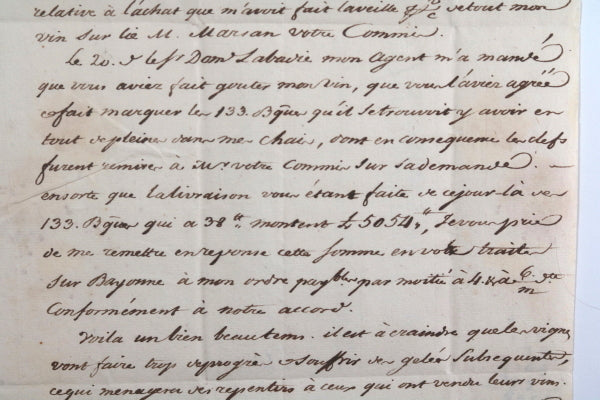 relative à l'achat que m'avoit fait la veille de tout mon
vin sur lie M. Marsan votre Commis.
Le 20. de le Sr. Domq. Labadie mon Agent m'a mandé
que vous aviez fait gouter mon vin, que vous l'aviez agréé
& fait marquer les 133. Bques qu'il se trouvoit y avoir en
tout de pleines dans mes Chais, dont en consequence les clefs
furent remises à Mr. votre Commis sur sa demande.
ensorte que la livraison vous étant faite de ce jour là des
133. Bques qui a 38 tt. montent £ 5054 tt, Je vous prie
de me remettre en reponse cette somme en votre traite
sur Bayonne à mon ordre paybles par moitié à 4. & à 6. m
Conformément à notre accord.
Voila un bien beau tems. il est à craindre que les vignes
vont faire trop de progrès & souffrir des gelées subsequentes,
ce qui menagera des repentirs à ceux qui ont vendu leurs vins.